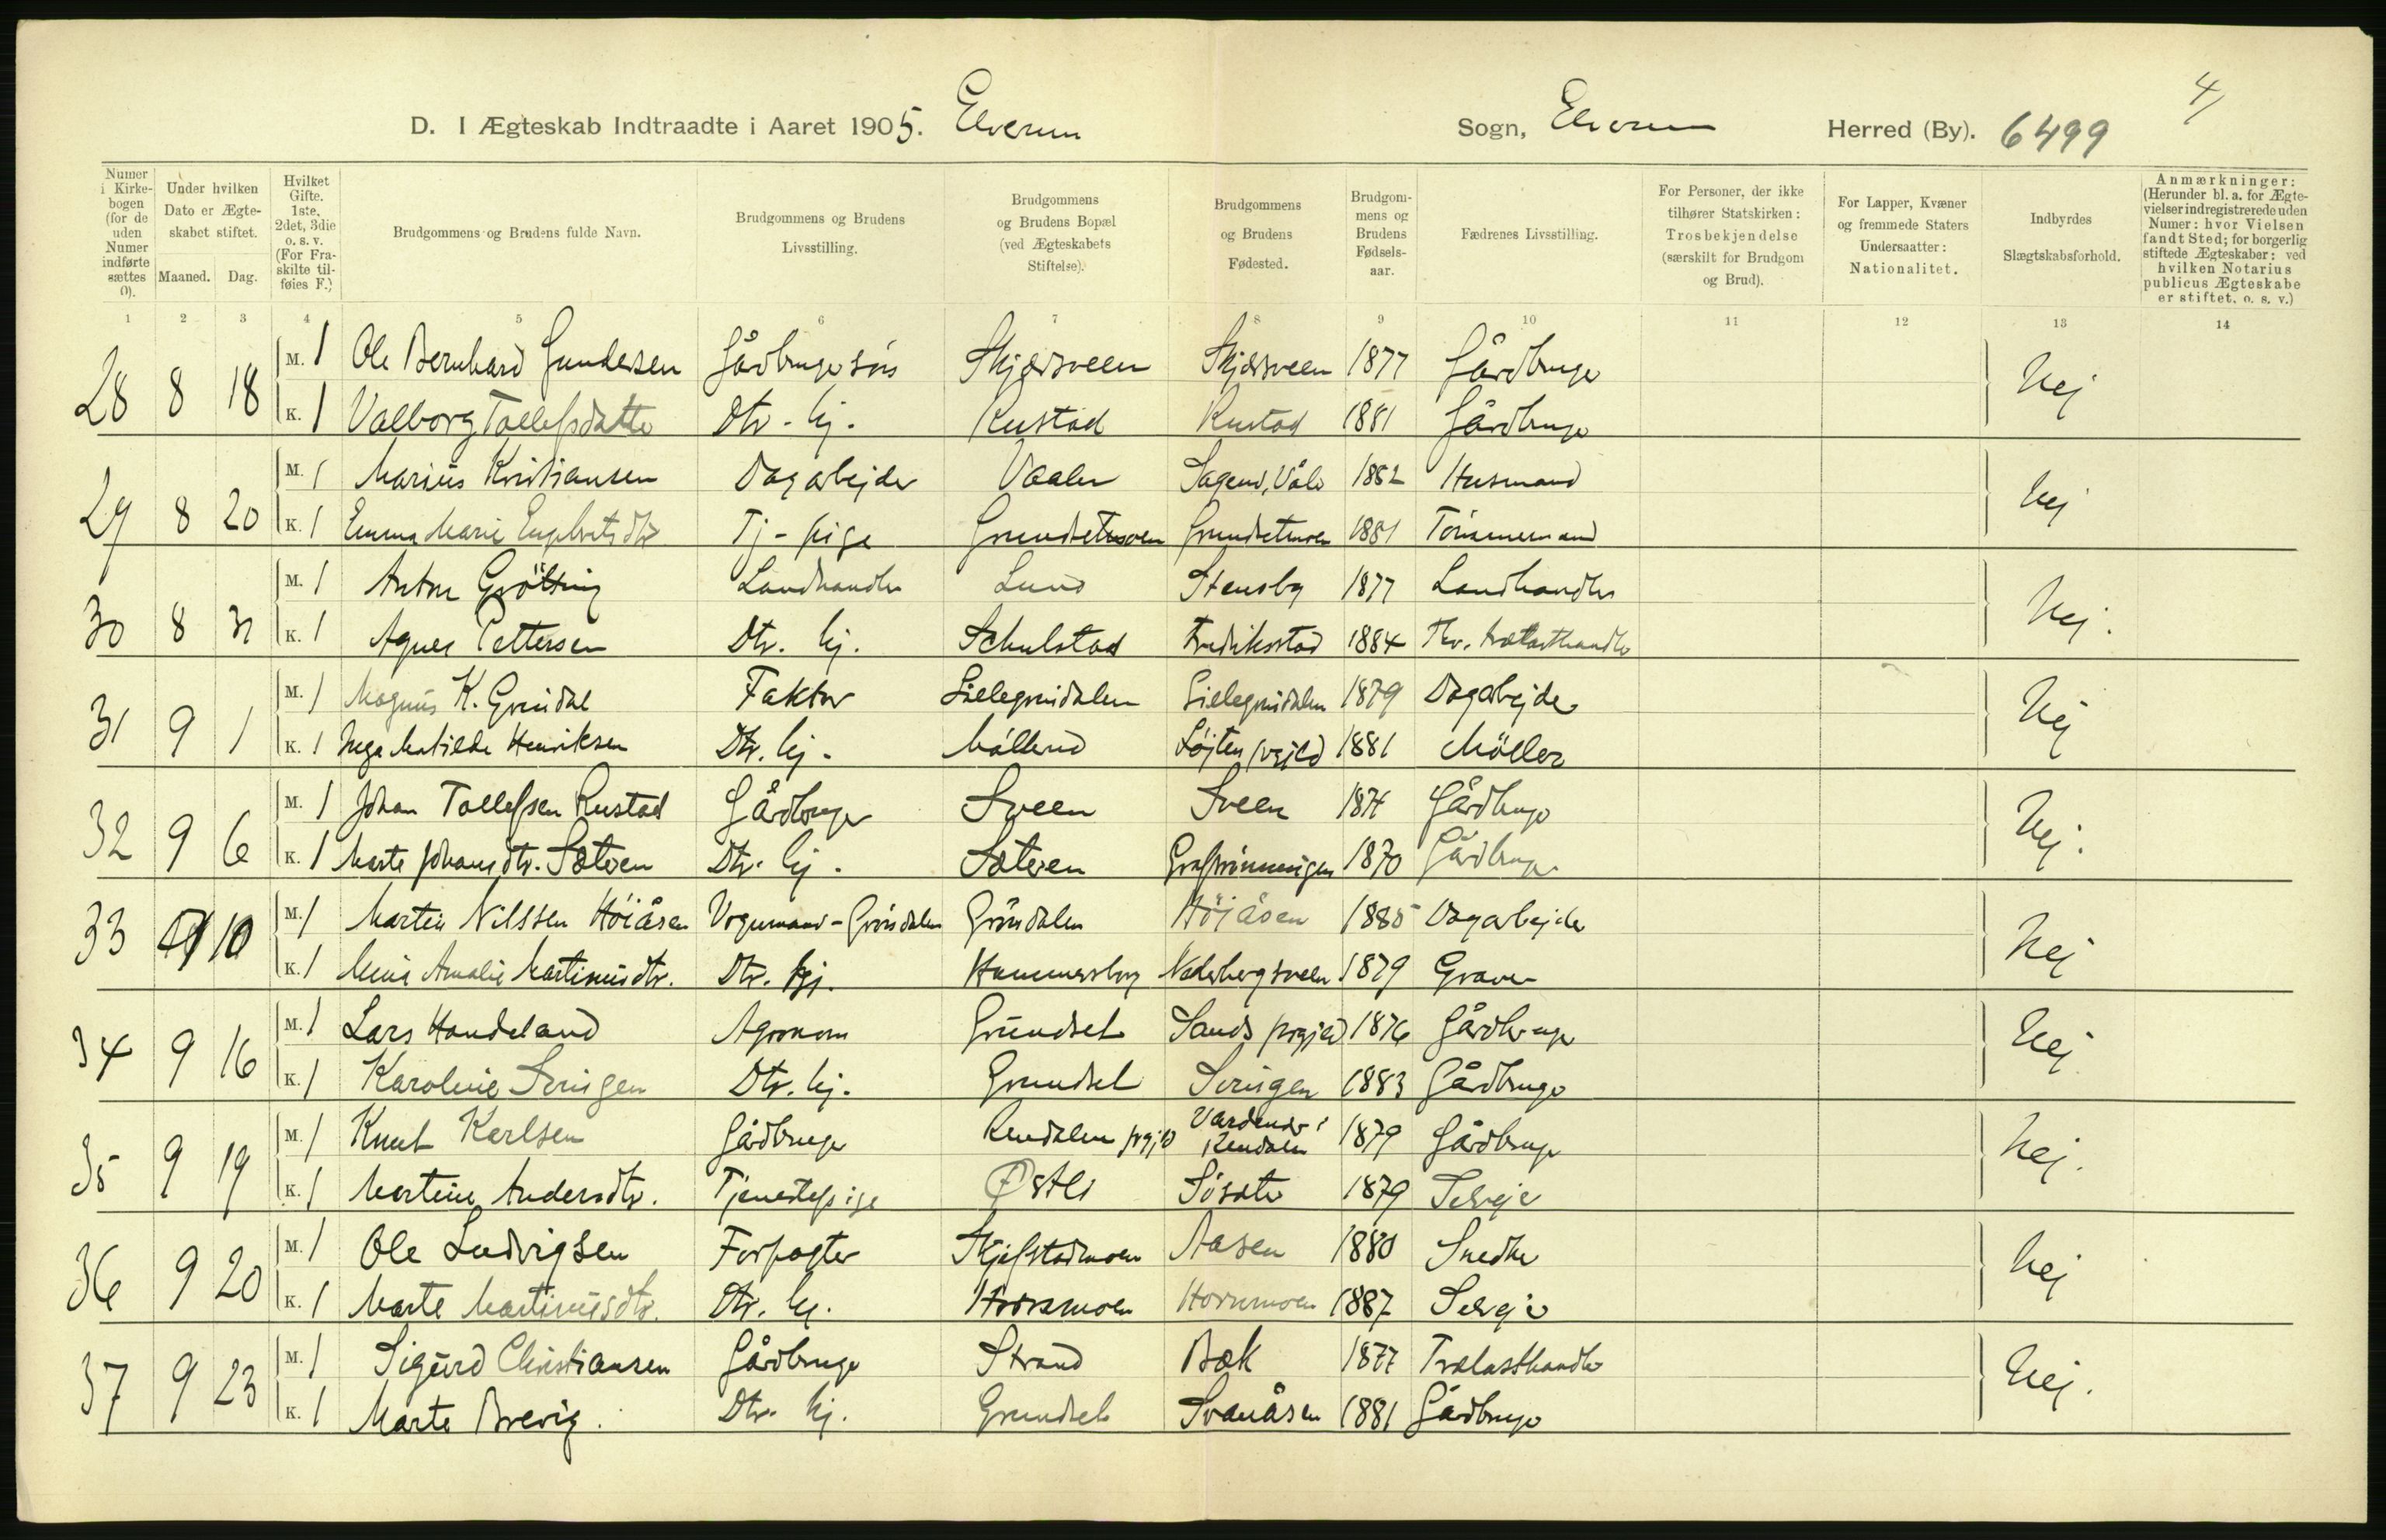 4/
D. I Ægteskab Indtraadte i Aaret 1905. Elverum Sogn, Elverum Herred (By). 6499
Numer i Kirkebogen (for de uden Numer indførte sættes 0).
Under hvilken Dato er Ægteskabet stiftet.
Maaned. Dag.
Hvilket Gifte. 1ste, 2det, 3die o. s. v. (For Fraskilte tilføies F.)
Brudgommens og Brudens fulde Navn.
Brudgommens og Brudens Livsstilling.
Brudgommens og Brudens Bopæl (ved Ægteskabets Stiftelse).
Brudgommens og Brudens Fødested.
Brudgommens og Brudens Fødselsaar.
Fædrenes Livsstilling.
For Personer, der ikke tilhører Statskirken: Trosbekjendelse (særskilt for Brudgom og Brud).
For Lapper, Kvæner og fremmede Staters Undersaatter: Nationalitet.
Indbyrdes Slægtskabsforhold.
Anmærkninger: (Herunder bl. a. for Ægtevielser indregistrerede uden Numer: hvor Vielsen fandt Sted; for borgerlig stiftede Ægteskaber: ved hvilken Notarius publicus Ægteskabe er stiftet, o. s. v.)
1 2 3 4 5 6 7 8 9 10 11 12 13 14
28 8 18 M. 1 Ole Bernhard Gundersen Gårdbruger søn Skjærsveen Skjærsveen 1877 Gårdbruger Nej
K. 1 Valborg Tollefsdatter Dtr. hj. Rustad Rustad 1881 Gårdbruger
29 8 20 M. 1 Marius Kristiansen Dagarbejder Vaaler Sagen, Våler 1882 Husmand Nej
K. 1 Emma Marie Engebretsdtr Tj-pige Grundsetmoen Grundsetmoen 1881 Tømmermand
30 8 31 M. 1 Anton Grøtting Landhandler Lund Stensby 1877 Landhandler Nej.
K. 1 Agnes Pettersen Dtr. hj. Schulstad Fredriksstad 1884 Trælasthandler
31 9 1 M. 1 Magnus K. Grindal Faktor Lillegrindalen Lillegrindalen 1879 Dagarbejder Nej
K. 1 Inga Matilde Henriksen Dtr. hj. Møllerud Løjten prgjld 1881 Møller
32 9 6 M. 1 Johan Tollefsen Rustad Gårdbruger Sveen Sveen 1874 Gårdbruger Nej.
K. 1 Marte Johansdtr. Sætren Dtr. hj. Sætren 1870 Gårdbruger
33 9 10 M. 1 Martin Nilssen Höiåsen Vognmand - Gröndalen Gröndalen Höjåsen 1885 Dagarbejder Nej
K. 1 Mina Amalie Martinusdtr. Dtr. hj. Hammersborg 1879 Graver
34 9 16 M. 1 Lars Handeland Agronom Grundset Sands prgjld 1876 Gårdbruger Nej
K. 1 Karoline Svingen Dtr. hj. Grundset Svingen 1883 Gårdbruger
35 9 19 M. 1 Knut Karlsen Gårdbruger Rendalen prgjld i Rendalen 1879 Gårdbruger Nej.
K. 1 Martine Andersdtr. Tjenestepige Østli 1879 Selvejer
36 9 20 M. 1 Ole Ludvigsen Forpagter Skjefstadmoen Aasen 1880 Snedker Nej
K. 1 Marte Martinusdtr. Dtr. hj. Hornmoen Hornmoen 1887 Selvejer
37 9 23 M. 1 Sigurd Christiansen Gårdbruger Strand Bæk 1877 Trælasthandler Nej.
K. 1 Marte Brevig. Dtr. hj. Grundset Svenåsen 1881 Gårdbruger